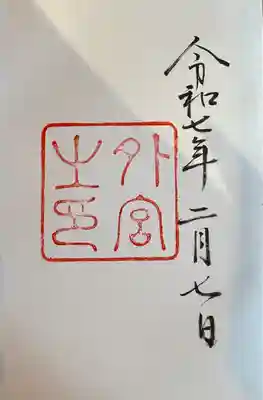 令和七年 二月七日
外宮
之印